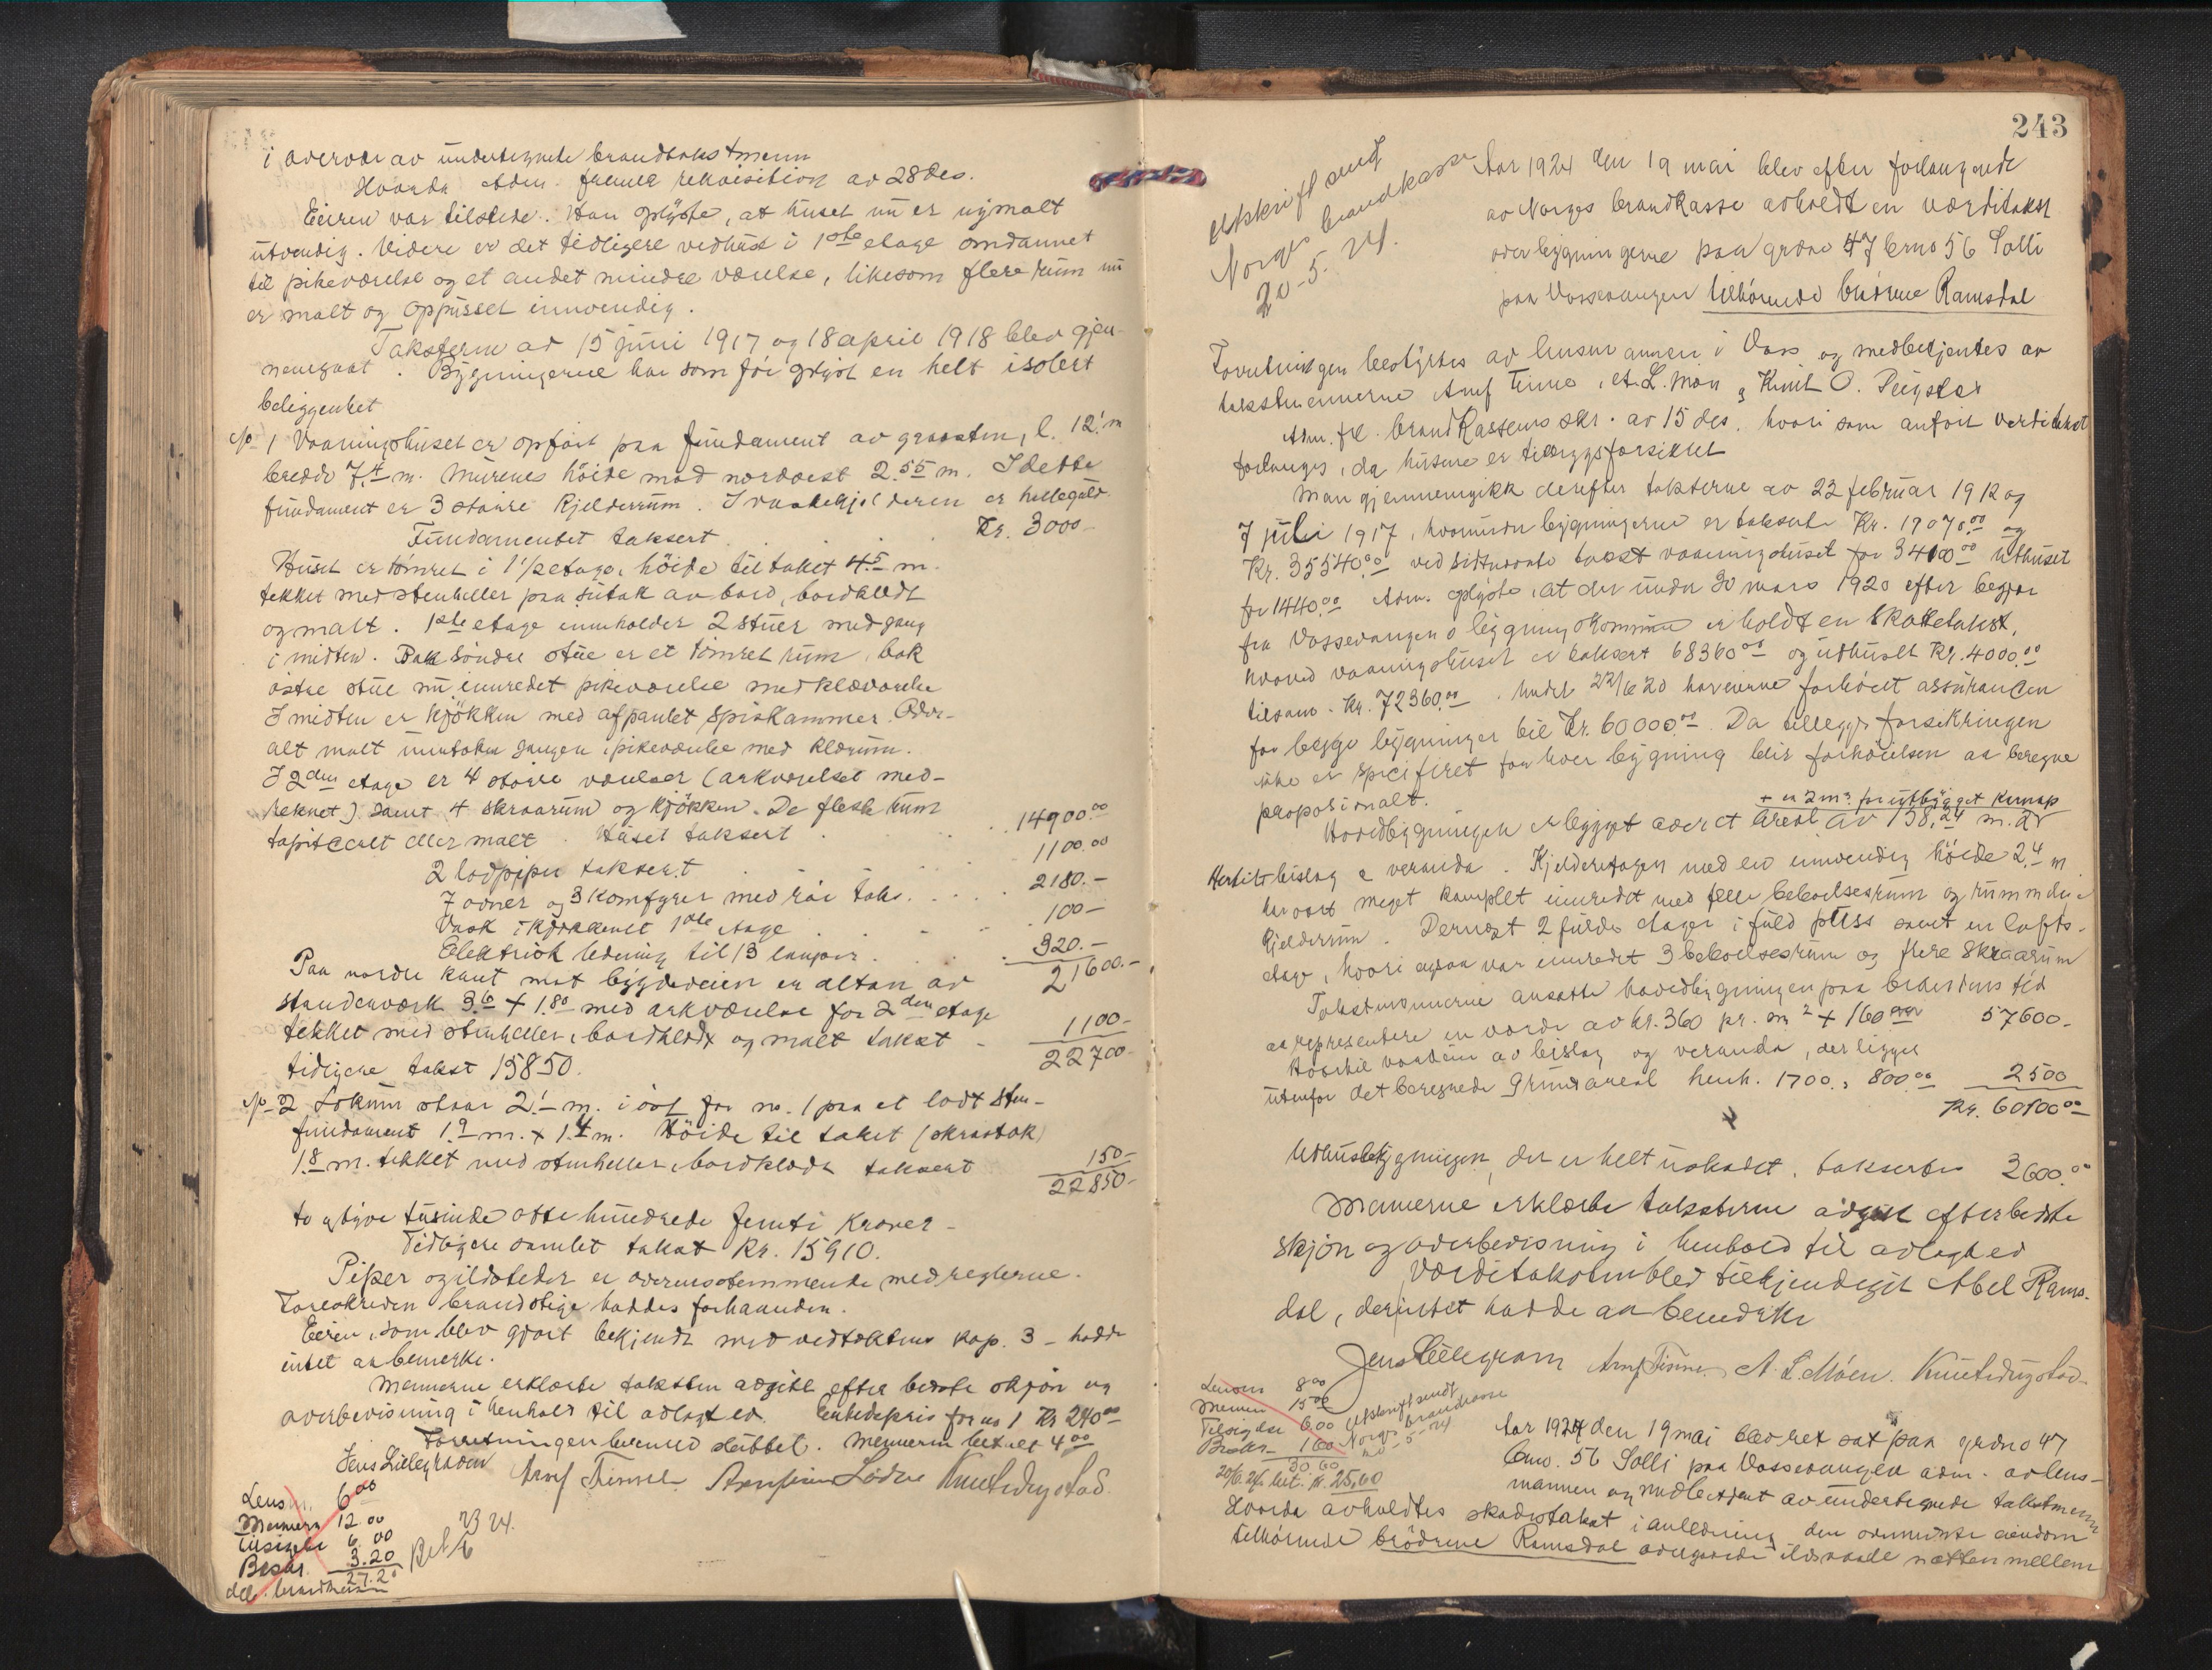 i overvær av undertegnede brandtakstmenn
Hvorda Adm. fremla rekvisition av 28 des.
Eieren var tilstede. Han oplyste, at huset nu er nymalt
utvendig. Videre er det tidligere vedhus i 1ste etage omdannet
til pikeværelse og et andet mindre værelse, likesom flere rum nu
er malt og oppusset innvendig.
Taksterne av 15 juni 1917 og 18 april 1918 blev gjen-
nemgaat. Bygningerne har som før oplyst en helt isolert
beliggenhet
No 1 Vaaningshuset er opført paa fundament av graasten, l. 12.1 m
bredde 7.4 m. Murenes høide mod nordvest 2.55 m. I dette
fundament er 3 større kjelderrum. I vaskekjelderen er hellegulv.
Fundamentet taksert Kr. 3000-
Huset er tømret i 1 1/2 etage, høide til taket 4.5 m.
tekket med stenheller paa sutak av bord, bordklædt
og malt. 1ste etage inneholder 2 stuer med gang
i midten. Bak søndre stue er et tømret rum, bak
østre stue nu innredet pikeværelse med klæværelse
I midten er kjøkken med afpanlet spiskammer. Over-
alt malt unntaken gangen, pikeværelse med klærum.
I 2den etage er 4 større værelser (arkværelset med-
reknet) samt 4 skraarum og kjøkken. De fleste rum
tapitseert eller malt. Huset taksert 14900.00
2 lodpiper taksert 1100.00
7 ovner og 3 komfyrer med rør taks. 2180.-
Vask i kjøkkenet 1ste etage 100-
Elektrisk ledning til 13 lamper 320.-
21600.-
Paa nordre kant mot bygdeveien en altan av
stenderverk 3.6 + 1.80 med arkværelse for 2den etage
tekket med stenheller, bordklædt og malt takst - 1100-
tidligere takst 15850. 22700-
No 2 Lokum staar 2.1 m. i øst for no. 1 paa et lodt sten-
fundament 1.9 m. x 1.4 m. Høide til taket (skraatak)
1.8 m. tekket med stenheller, bordklædt taksert 150-
22850-
to og tyve tusinde otte hundrede femti kroner-
Tidligere samlet takst Kr. 15910.
Piper og ildsteder er overensstemmende med reglerne.
Foreskreven brandstige haddes forhaanden.
Eieren, som blev gjort bekjendt med vedtektens kap. 3 - hadde
intet aa bemerke.
Mennerne erklærte taksten avgitt efter bedste skjøn og
overbevisning i henhold til avlagt ed. Enhetspris for no 1 Kr 240.00
Forretningen dermed sluttet. Mennerne betalt 4.00
Jens Lillegraven Arnf Finne Knut Dugstad
Lensm. 6.00
Mennern 12.00
Tilsigelse 6.00
Beskr. 3.20
27.20
Bet. 23/6 24.
243
Utskrift sendt
Norges brandkasse
20-5-24.
Aar 1924 den 19 mai blev efter forlangende
av Norges brandkasse avholdt en værditakst
over bygningerne paa grdno 47 brno 56 Solli
paa Vossevangen tilhørende brødrene Ramsdal
Forretningen bestyrtes av lensmannen i Voss og medbetjentes av
takstmennerne Arnf Finne, A. L. Møn, Knut O. Dugstad
Adm. frl. brandkassens skr. av 15 des. hvori som anført verditakst
forlanges, da husene er tilleggsforsikret
Man gjennemgikk derefter taksterne av 22 februar 1912 og
7 juli 1917, hvorunder bygningerne er taksert Kr. 19070.00 og
Kr. 35540.00 ved sistnevnte takst vaaningshuset for 34100.00 Uthuset
for 1440.00 Adm. oplyste, at der under 30 mars 1920 efter begjær
fra Vossevangens bygningskommune er holdt en Skattetakst,
hvorved vaaningshuset er taksert 68360.00 og uthuset Kr. 4000.00
tilsam. Kr. 72360.00. Under 22/6 20 har eierne forhøiet assurancen
for begge bygninger til Kr. 60000.00. Da tilleggsforsikringen
ikke er spicifiret for hver bygning blir forhøielsen aa beregne
proposionalt.
+ en 2 m2 for utbygget kvnap
Hovedbygningen er bygget over et areal av 158,24 m. ar
Hertil bislag & veranda. Kjelderetagen med en innvendig høide 2.4 m
har vært meget komplet innredet med fleer beboelsesrum og rummelige
kjelderrum. Dernæst 2 fulde etager i fuld puss samt en lofts-
etage, hvori ogsaa var innredet 3 beboelsesrum og flere skraarum
Takstmennerne ansatte hovedbygningen paa brandens tid
aa representere en værdi av kr. 360 pr. m2 + 160 57600-
Hvortil værdien av bislag og veranda, der ligger
utenfor det beregnede grundareal henh. 1700., 800.00 2500
Kr. 60100.00
Uthusbygningen, der er helt uskadet, takserte 3600.00
Mannerne erklærte taksterne avgitt efter bedste
skjøn og overbevisning i henhold til avlagt ed
Værditaksten blev tilkjendegit Abel Rams-
dal, der intet hadde aa bemerke
Jens Lillegraven Arnf Finne A. L. Møen. Knut Dugstad
Lensm 8.00
Mennen 15.00
Tilsigelse 6.00
Beskr. 1.60
30.60
Utskrift sendt
Norges brandkasse
20-5-24
20/6 24 bet. kr. 25,60
Aar 1924 den 19 mai blev ret sat paa grdno 47
brno. 56 Solli paa Vossevangen adm. av lens-
mannen og medbetjent av undertegnede takstmenn
Hvorda avholdtes skadetakst i anledning den ovennevnte eiendom
tilhørende brødrene Ramsdal overgaaede ildsvaade natten mellem